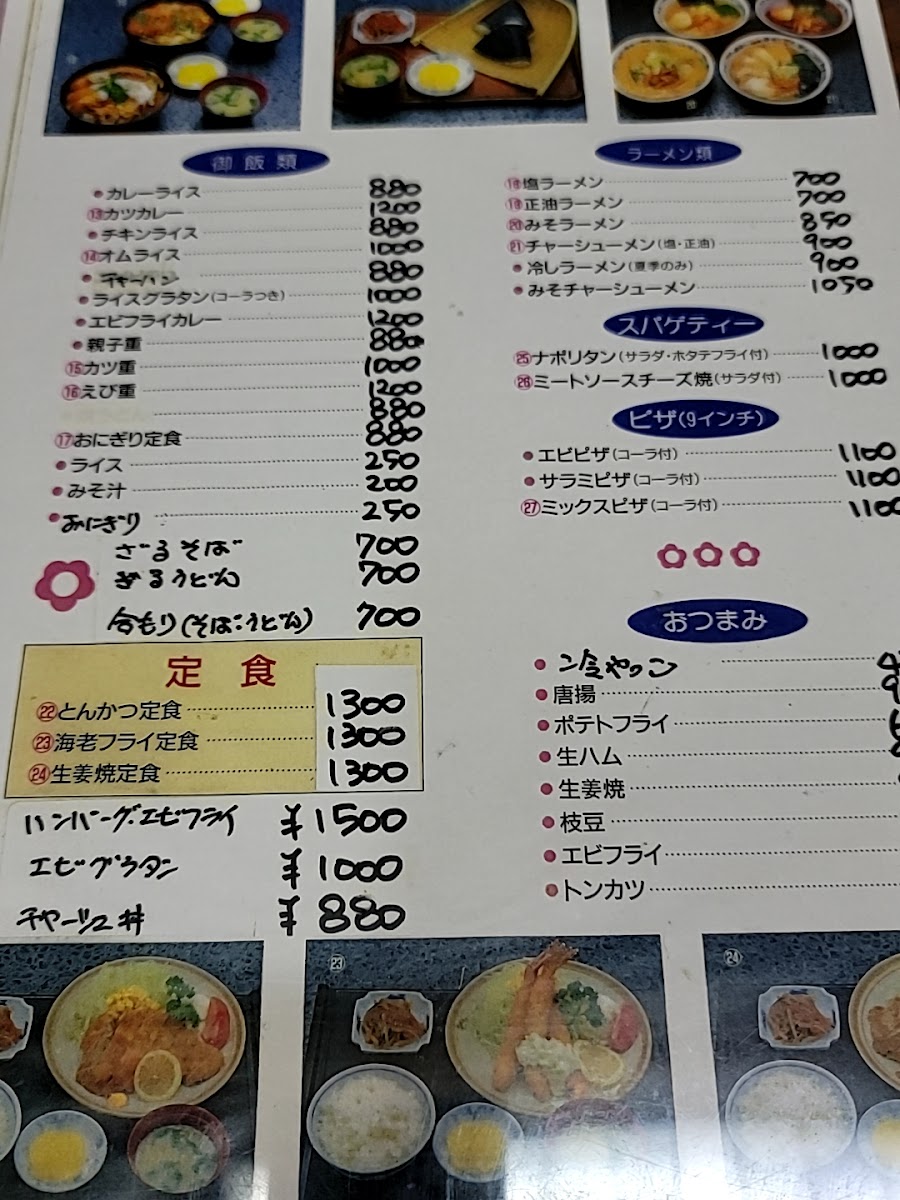 御飯類
カレーライス 880
⑬カツカレー 1200
チキンライス 880
⑭オムライス 1000
チャーハン 880
ライスグラタン(コーラつき) 1000
エビフライカレー 1200
親子重 880
⑮カツ重 1000
⑯えび重 1200
880
⑰おにぎり定食 880
ライス 250
みそ汁 200
おにぎり 250
ざるそば 700
ざるうどん 700
合もり(そば・うどん) 700
定食
㉒とんかつ定食 1300
㉓海老フライ定食 1300
㉔生姜焼定食 1300
ハンバーグ・エビフライ ¥1500
エビグラタン ¥1000
チャーシュー丼 ¥880
ラーメン類
⑱塩ラーメン 700
⑲正油ラーメン 700
⑳みそラーメン 850
㉑チャーシューメン(塩・正油) 900
冷しラーメン(夏季のみ) 900
みそチャーシューメン 1050
スパゲティー
㉕ナポリタン(サラダ・ホタテフライ付) 1000
㉖ミートソースチーズ焼(サラダ付) 1000
ピザ(9インチ)
エビピザ(コーラ付) 1100
サラミピザ(コーラ付) 1100
㉗ミックスピザ(コーラ付) 1100
おつまみ
冷やっこ
唐揚
ポテトフライ
生ハム
生姜焼
枝豆
エビフライ
トンカツ
㉓
㉔